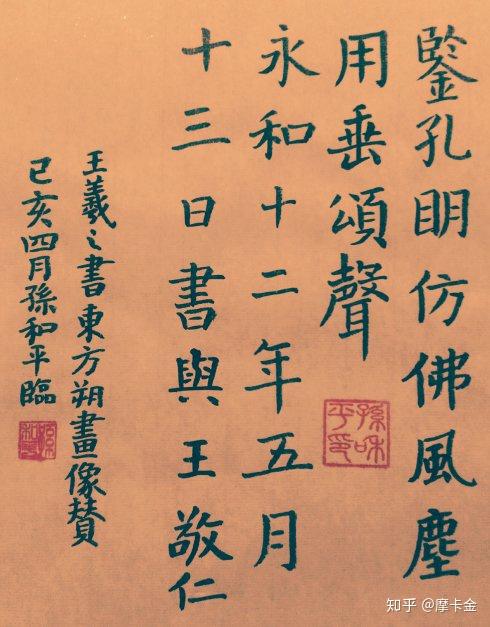 鑒孔眀仿佛風塵
用垂頌聲
永和十二年五月
十三日書與王敬仁
王羲之書東方朔畫像賛
己亥四月孫和平臨
孫和平印
知乎 @摩卡金